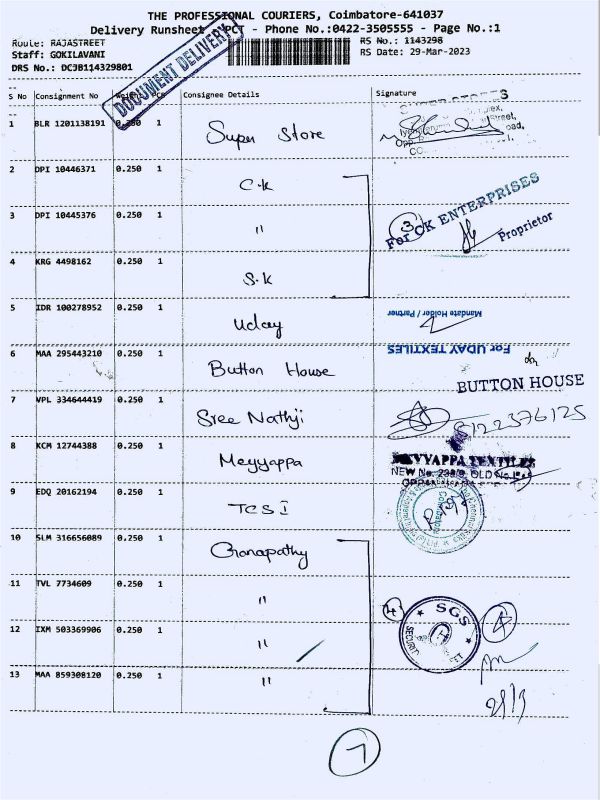 THE PROFESSIONAL COURIERS, Coimbatore-641037
Delivery Runsheet PCT - Phone No.:0422-3505555 - Page No.:1
Route: RAJASTREET RS No.: 1143298
Staff: GOKILAVANI RS Date: 29-Mar-2023
DRS No.: DC3B114329801
DOCUMENT DELIVERY
S No Consignment No Weight PCS Consignee Details Signature
1 BLR 1201138191 0.250 1 Super Store
2 DPI 10446371 0.250 1 C.K
3 DPI 10445376 0.250 1 "
3
For CK ENTERPRISES
Proprietor
4 KRG 4498162 0.250 1 S.K
5 IDR 100278952 0.250 1 Uday
Mandate Holder / Partner
For UDAY TEXTILES
6 MAA 295443210 0.250 1 Button House
BUTTON HOUSE
7 VPL 334644419 0.250 1 Sree Nathji
8122376125
8 KCM 12744388 0.250 1 Meyyappa
MEYYAPPA TEXTILES
NEW No. OLD No.
9 EDQ 20162194 0.250 1 TCSI
10 SLM 316656089 0.250 1 Ganapathy
11 TVL 7734609 0.250 1 "
4 SGS 4
SECURIT
12 IXM 503369906 0.250 1 "
13 MAA 859308120 0.250 1 "
29/3
7